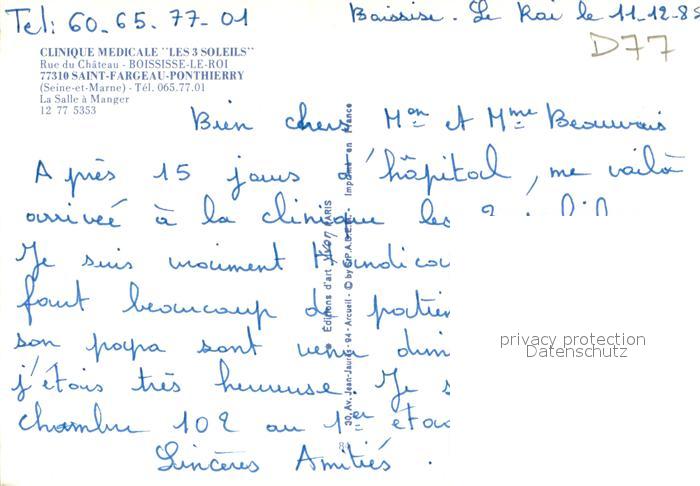 Tel: 60.65.77-01
Boissise. Le Roi le 11-12-85
D77
CLINIQUE MEDICALE "LES 3 SOLEILS"
Rue du Château - BOISSISE-LE-ROI
77310 SAINT-FARGEAU-PONTHIERRY
(Seine-et-Marne) - Tél. 065.77.01
La Salle à Manger
12 77 5353
Bien chers Mon et Mme Beauvais
Après 15 jours à l'hôpital, me voilà
arrivée à la clinique les
Je suis vraiment
faut beaucoup de
son papa sont venu
j'étais très heureuse. Je
chambre 102 au 1er
Sincères Amitiés.
Editions d'art YVON PARIS
30, Av. Jean-Jaurès - 94 - Arcueil - © by S.P.A.D.E.M. - Imprimé en France
privacy protection
Datenschutz